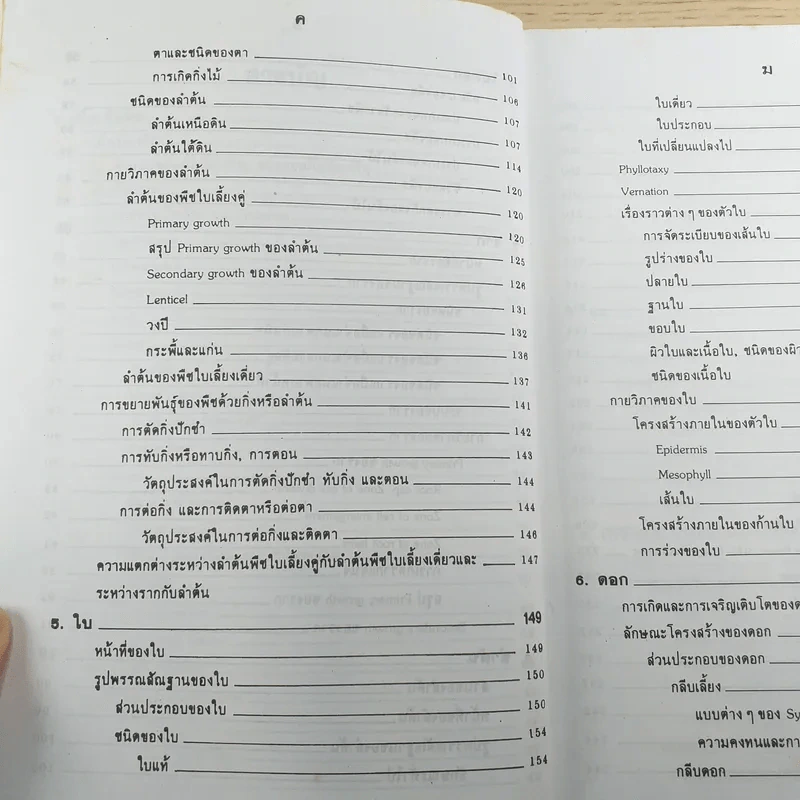 ค
ตาและชนิดของตา
การเกิดกิ่งไม้ 101
ชนิดของลำต้น 106
ลำต้นเหนือดิน 107
ลำต้นใต้ดิน 107
กายวิภาคของลำต้น 114
ลำต้นของพืชใบเลี้ยงคู่ 120
Primary growth 120
สรุป Primary growth ของลำต้น 120
Secondary growth ของลำต้น 125
Lenticel 126
วงปี 131
กระพี้และแก่น 132
ลำต้นของพืชใบเลี้ยงเดี่ยว 136
การขยายพันธุ์ของพืชด้วยกิ่งหรือลำต้น 137
การตัดกิ่งปักชำ 141
การทับกิ่งหรือทาบกิ่ง, การตอน 142
วัตถุประสงค์ในการตัดกิ่งปักชำ ทับกิ่ง และตอน 143
การต่อกิ่ง และการติดตาหรือต่อตา 144
วัตถุประสงค์ในการต่อกิ่งและติดตา 144
146
ความแตกต่างระหว่างลำต้นพืชใบเลี้ยงคู่กับลำต้นพืชใบเลี้ยงเดี่ยวและ 147
ระหว่างรากกับลำต้น
5. ใบ 149
หน้าที่ของใบ 149
รูปพรรณสัณฐานของใบ 150
ส่วนประกอบของใบ 150
ชนิดของใบ 154
ใบแท้ 154
ฆ
ใบเดี่ยว
ใบประกอบ
ใบที่เปลี่ยนแปลงไป
Phyllotaxy
Vernation
เรื่องราวต่าง ๆ ของตัวใบ
การจัดระเบียบของเส้นใบ
รูปร่างของใบ
ปลายใบ
ฐานใบ
ขอบใบ
ผิวใบและเนื้อใบ, ชนิดของผิว
ชนิดของเนื้อใบ
กายวิภาคของใบ
โครงสร้างภายในของตัวใบ
Epidermis
Mesophyll
เส้นใบ
โครงสร้างภายในของก้านใบ
การร่วงของใบ
6. ดอก
การเกิดและการเจริญเติบโตของด
ลักษณะโครงสร้างของดอก
ส่วนประกอบของดอก
กลีบเลี้ยง
แบบต่าง ๆ ของ Sy
ความคงทนและกา
กลีบดอก